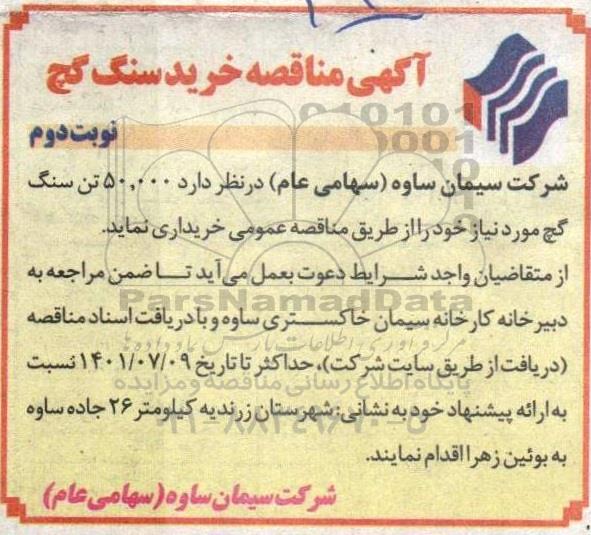 آگهی مناقصه خرید سنگ گچ
نوبت دوم
شرکت سیمان ساوه (سهامی عام) در نظر دارد ۵۰,۰۰۰ تن سنگ
گچ مورد نیاز خود را از طریق مناقصه عمومی خریداری نماید.
از متقاضیان واجد شرایط دعوت بعمل می آید تا ضمن مراجعه به
دبیرخانه کارخانه سیمان خاکستری ساوه و با دریافت اسناد مناقصه
(دریافت از طریق سایت شرکت)، حداکثر تا تاریخ ۱۴۰۱/۰۷/۰۹ نسبت
به ارائه پیشنهاد خود به نشانی: شهرستان زرندیه کیلومتر ۲۶ جاده ساوه
به بوئین زهرا اقدام نمایند.
شرکت سیمان ساوه (سهامی عام)
ParsNamadData
پایگاه اطلاع رسانی مناقصه و مزایده